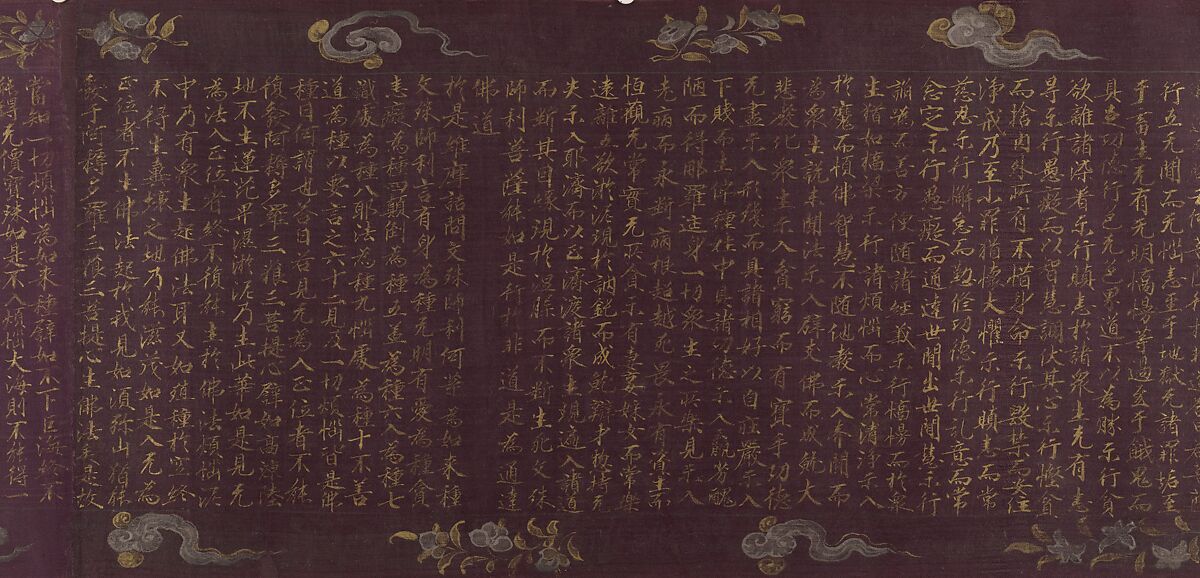 行五无間而无惱恚至于地獄无諸罪垢至
于畜生无有无明憍慢等過至于餓鬼而
具足功德行色无色界道不以為勝示行貪
欲離諸染著示行瞋恚於諸衆生无有恚
㝵示行愚癡而以智慧調伏其心示行慳貪
而捨內外所有不惜身命示行毀禁而安住
淨戒乃至小罪猶懷大懼示行瞋恚而常
慈忍示行懈怠而懃修功德示行乱意而常
念定示行愚癡而通達世間出世間慧示行
諂偽而善方便隨諸經義示行憍慢而於衆
生猶如橋樑示行諸煩惱而心常清淨示入
於魔而順佛智慧不隨他教示入聲聞而
為衆生說未聞法示入辟支佛而成就大
悲教化衆生示入貧窮而有寶手功德
无盡示入形殘而具諸相好以自莊嚴示入
下賤而生佛種姓中具諸功德示入羸劣醜
陋而得那羅延身一切衆生之所樂見示入
老病而永斷病根超越死畏示有資生而
恒觀无常實无所貪示有妻妾婇女而常樂
遠離五欲淤泥現於訥鈍而成就辯才總持无
失示入耶濟而以正濟度諸衆生現遍入諸道
而斷其因緣現於涅槃而不斷生死文殊
師利菩薩能如是行於非道是為通達
佛道
於是維摩詰問文殊師利何等為如來種
文殊師利言有身為種无明有愛為種貪
恚癡為種四顛倒為種五蓋為種六入為種七
識處為種八耶法為種九惱處為種十不善
道為種以要言之六十二見及一切煩惱皆是佛
種曰何謂也答曰若見无為入正位者不能
復發阿耨多羅三藐三菩提心譬如高陸
地不生蓮花卑濕淤泥乃生此華如是見无
為法入正位者終不復能生於佛法煩惱泥
中乃有衆生起佛法耳又如殖種於空終
不得生糞壤之地乃能滋茂如是入无為
正位者不生佛法起於我見如須弥山猶能
發于阿耨多羅三藐三菩提心生佛法矣是故
當知一切煩惱為如來種譬如不下巨海終不
能得无價寶珠如是不入煩惱大海則不能得一